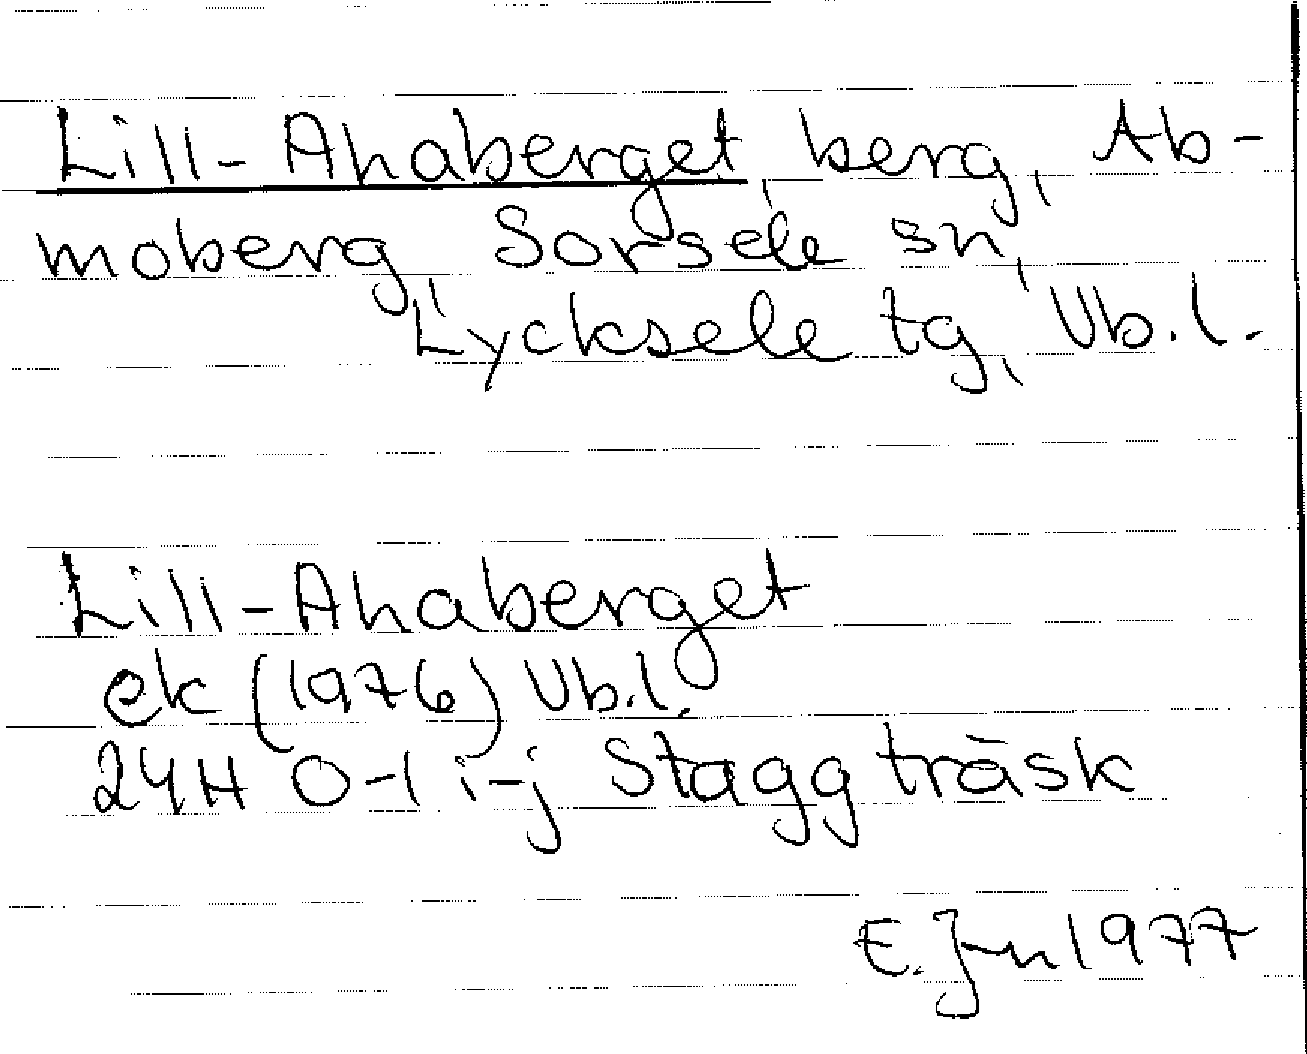 Lill-Ahaberget, berg, Ab-
moberg, Sorsele sn,
Lycksele tg, Vb. l.
Lill-Ahaberget
ek (1976) Vb. l.
24H 0-1 i-j Staggträsk
E. Jn 1977